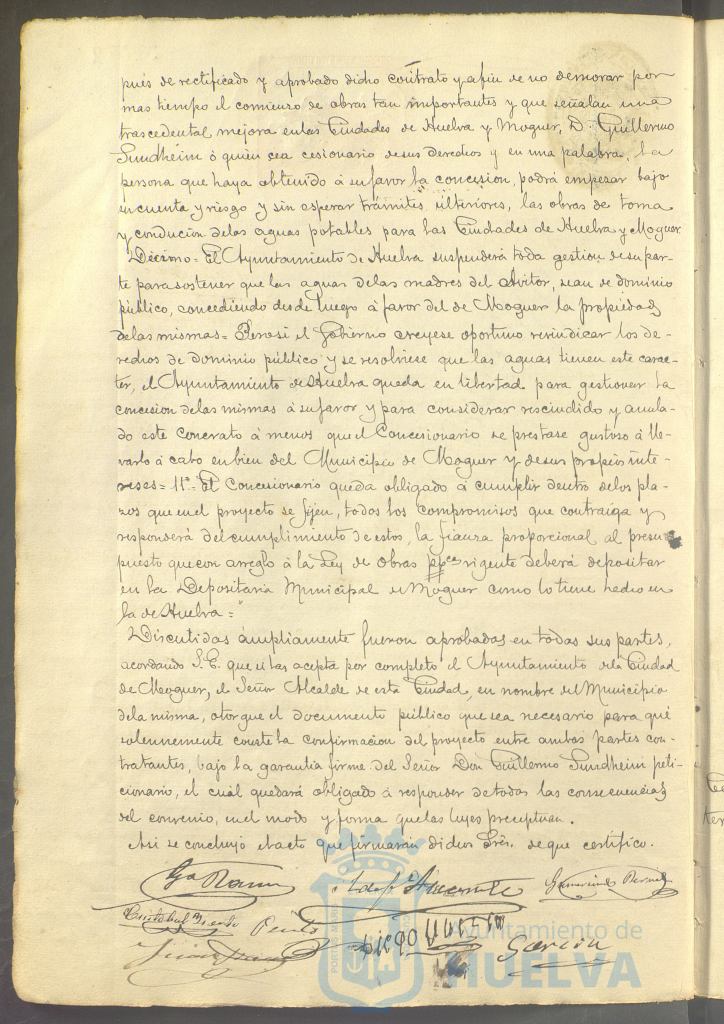 pués de rectificado y aprobado dicho contrato y afin de no demorar por
mas tiempo el comienzo de obras tan importantes y que señalan una
trascedental mejora enlas Ciudades de Huelva y Moguer, D. Guillermo
Sundheim ó quien sea cesionario desus derechos y en una palabra, la
persona que haya obtenido á su favor la concesion, podrá empezar bajo
su cuenta y riesgo y sin esperar trámites ulteriores, las obras de toma
y conducion delas aguas potables para las Ciudades de Huelva y Moguer.
Décimo= El Ayuntamiento de Huelva suspenderá toda gestion desu par-
te para sostener que las aguas delas madres del Avitor, sean de dominio
público, concediendo desde luego á favor del de Moguer la propiedad
delas mismas= Pero si el Gobierno creyese oportuno reivindicar los de-
rechos de dominio público y se resolviese que las aguas tienen este carac-
ter, el Ayuntamiento de Huelva queda en libertad para gestionar la
concesion delas mismas á su favor y para considerar rescindido y anula-
do este Concrato á menos que el Concesionario se prestase gustoso á lle-
varlo á cabo en bien del Municipio de Moguer y desus propios inte-
reses= 11º El Concesionario queda obligado á cumplir dentro delos pla-
zos que enel proyecto se fijen, todos los compromisos que contraiga y
responderá del cumplimiento de estos, la fianza proporcional al presu-
puesto que con arreglo á la Ley de Obras ppcas vigente deberá depositar
en la Depositaria Municipal de Moguer como lo tiene hecho en
la de Huelva="
Discutidas ámpliamente fueron aprobadas en todas sus partes,
acordando S.E. que si las acepta por completo el Ayuntamiento dela Ciudad
de Moguer, el Señor Alcalde de esta Ciudad, en nombre del Municipio
dela misma, otorgue el documento público que sea necesario para que
solennemente conste la confirmacion del proyecto entre ambas partes con-
tratantes, bajo la garantia firme del Señor Don Guillermo Sundheim peti-
cionario, el cuál quedará obligado á responder detodas las consecuencias
del convenio, enel modo y forma quelas leyes preceptuan.
Asi se concluyó el acto que firmarán dichos Sres. de que certifico.
Pinto
Diego
García
Ayuntamiento de
HUELVA